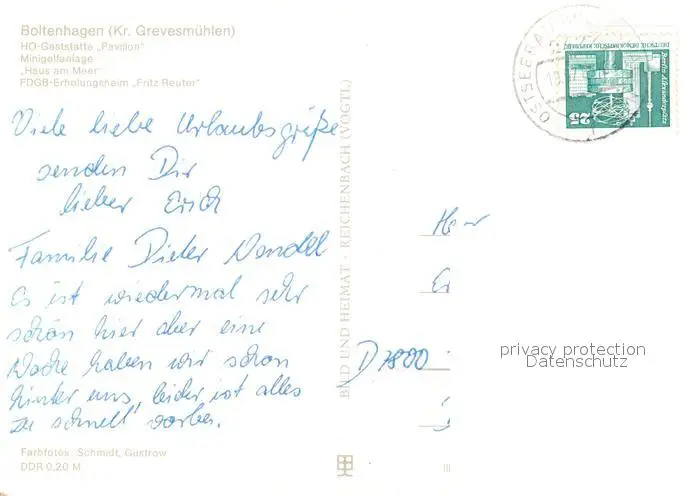 Boltenhagen (Kr. Grevesmühlen)
HO-Gaststätte „Pavillon"
Minigolfanlage
„Haus am Meer"
FDGB-Erholungsheim „Fritz Reuter"
Viele liebe Urlaubsgrüße
senden Dir
lieber Erich
Familie Dieter
Es ist wiedermal sehr
schön hier aber eine
Woche haben wir schon
hinter uns, leider ist alles
zu schnell vorbei.
Farbfotos: Schmidt, Güstrow
DDR 0,20 M
BILD UND HEIMAT · REICHENBACH (VOGTL)
III
OSTSEEBAD
DEUTSCHE DEMOKRATISCHE REPUBLIK
Berlin, Alexanderplatz
25
Her
Er
D 7800
privacy protection
Datenschutz